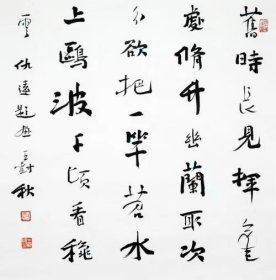 舊時長見揮毫
處脩竹幽蘭取次
分欲把一竿苕水
上鷗波千頃看穐
雲 仇遠題画